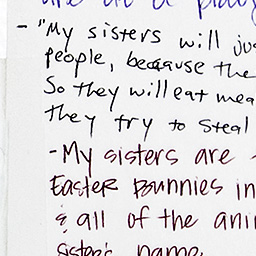 are at a play
- "My sisters will ju
people, because the
So they will eat mea
they try to steal
- My sisters are
Easter Bunnies in
& all of the ani
sister's name